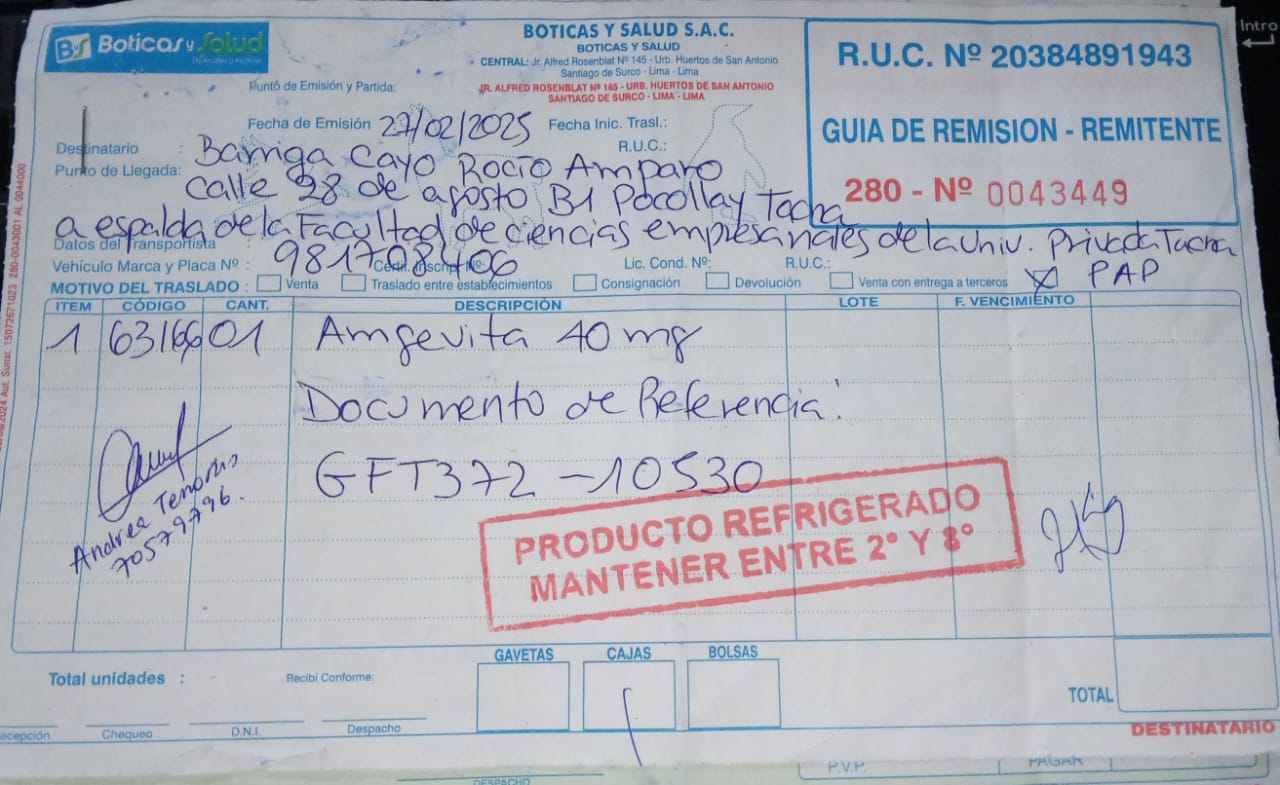 Intro
B·S Boticas y Salud
BOTICAS Y SALUD S.A.C.
BOTICAS Y SALUD
CENTRAL: Jr. Alfred Rosenblat Nº 145 - Urb. Huertos de San Antonio
Santiago de Surco - Lima - Lima
Punto de Emisión y Partida: JR. ALFRED ROSENBLAT Nº 165 - URB. HUERTOS DE SAN ANTONIO
SANTIAGO DE SURCO - LIMA - LIMA
R.U.C. Nº 20384891943
GUIA DE REMISION - REMITENTE
280 - Nº 0043449
Fecha de Emisión 27/02/2025 Fecha Inic. Trasl.:
Destinatario : Barriga Cayo Rocío Amparo R.U.C.:
Punto de Llegada: Calle 28 de agosto B1 Pocollay Tacna
a espalda de la Facultad de ciencias empresariales de la Univ. Privada Tacna
Datos del Transportista
Vehículo Marca y Placa Nº : 981708406 Certif. Inscrip. Nº: Lic. Cond. Nº: R.U.C.:
MOTIVO DEL TRASLADO : Venta Traslado entre establecimientos Consignación Devolución Venta con entrega a terceros X PAP
ITEM CÓDIGO CANT. DESCRIPCIÓN LOTE F. VENCIMIENTO
1 631660 01 Amgevita 40 mg
Documento de Referencia:
GFT372 - 10530
Andrea Tenorio
70579796.
PRODUCTO REFRIGERADO
MANTENER ENTRE 2° Y 8°
GAVETAS CAJAS BOLSAS
Total unidades : Recibí Conforme:
1
TOTAL
ecepción Chequeo D.N.I. Despacho
DESTINATARIO
DESPACHO P.V.P. PAGAR
2024 Aut. Sunat: 15072671023 280-0043001 AL 0044000